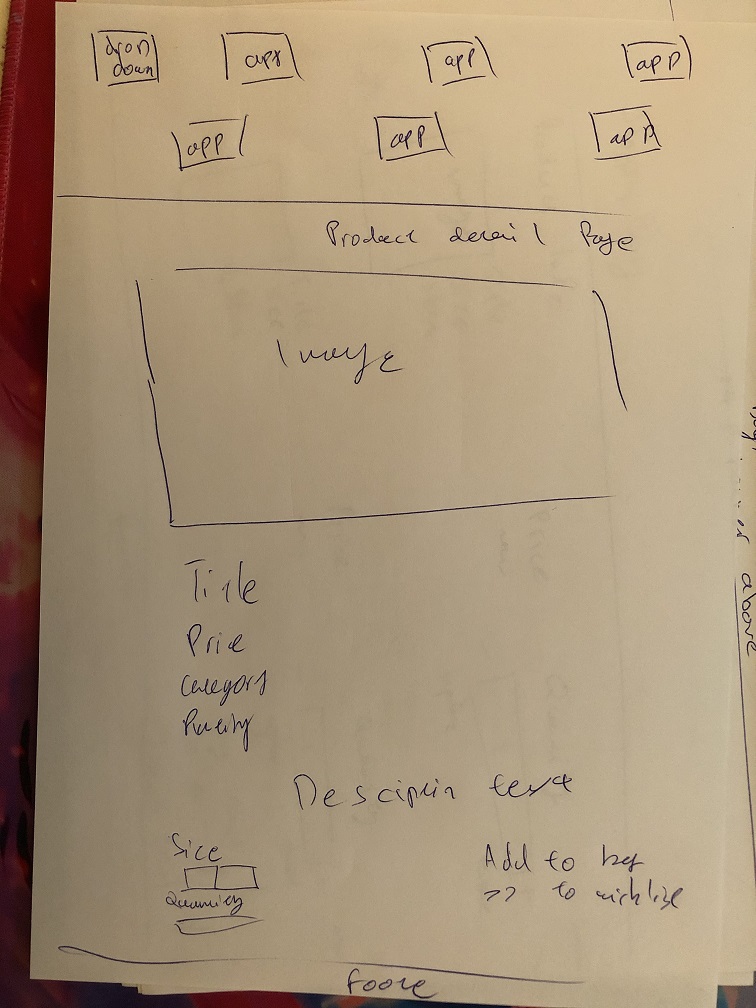 dron down
app
app
app
app
app
app
Product detail Page
Image
Title
Price
Category
Desciptin text
Size
Quantity
Add to bag
>> to wishlist
Foote
above